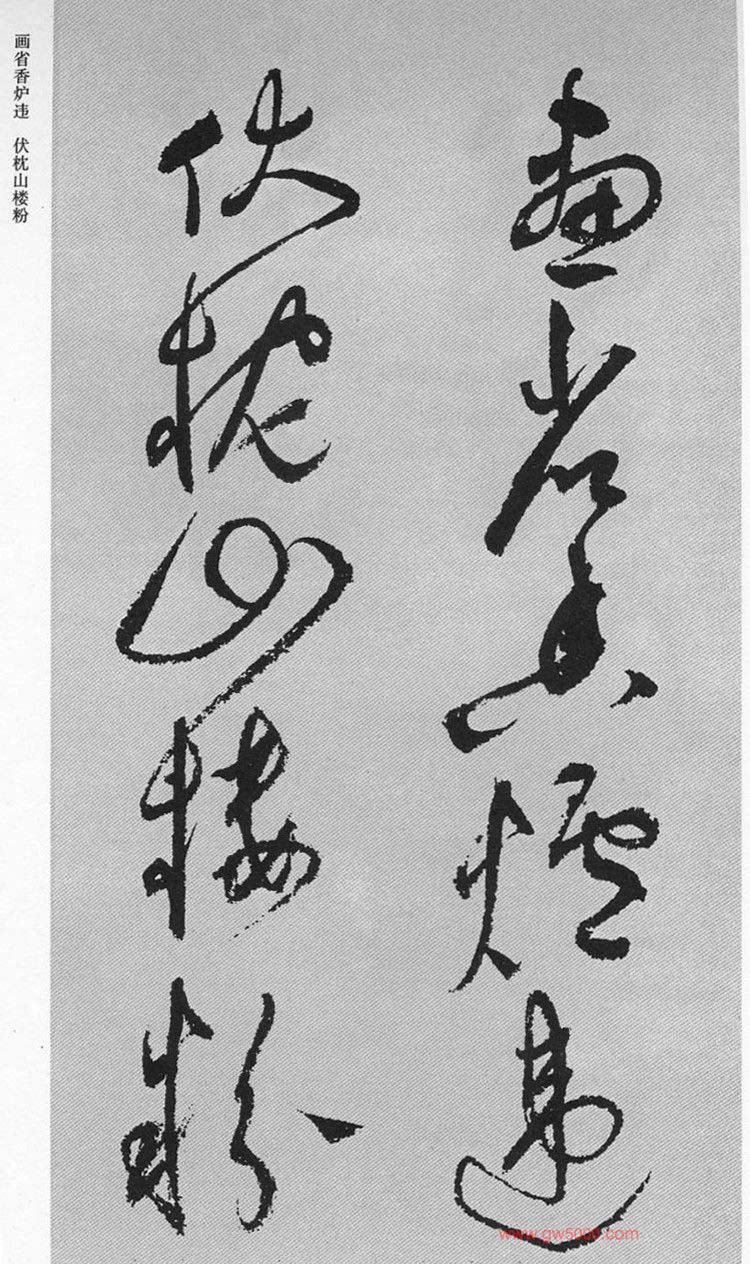 画省香炉违
伏枕山楼粉
画省香炉违 伏枕山楼粉
www.gw5000.com